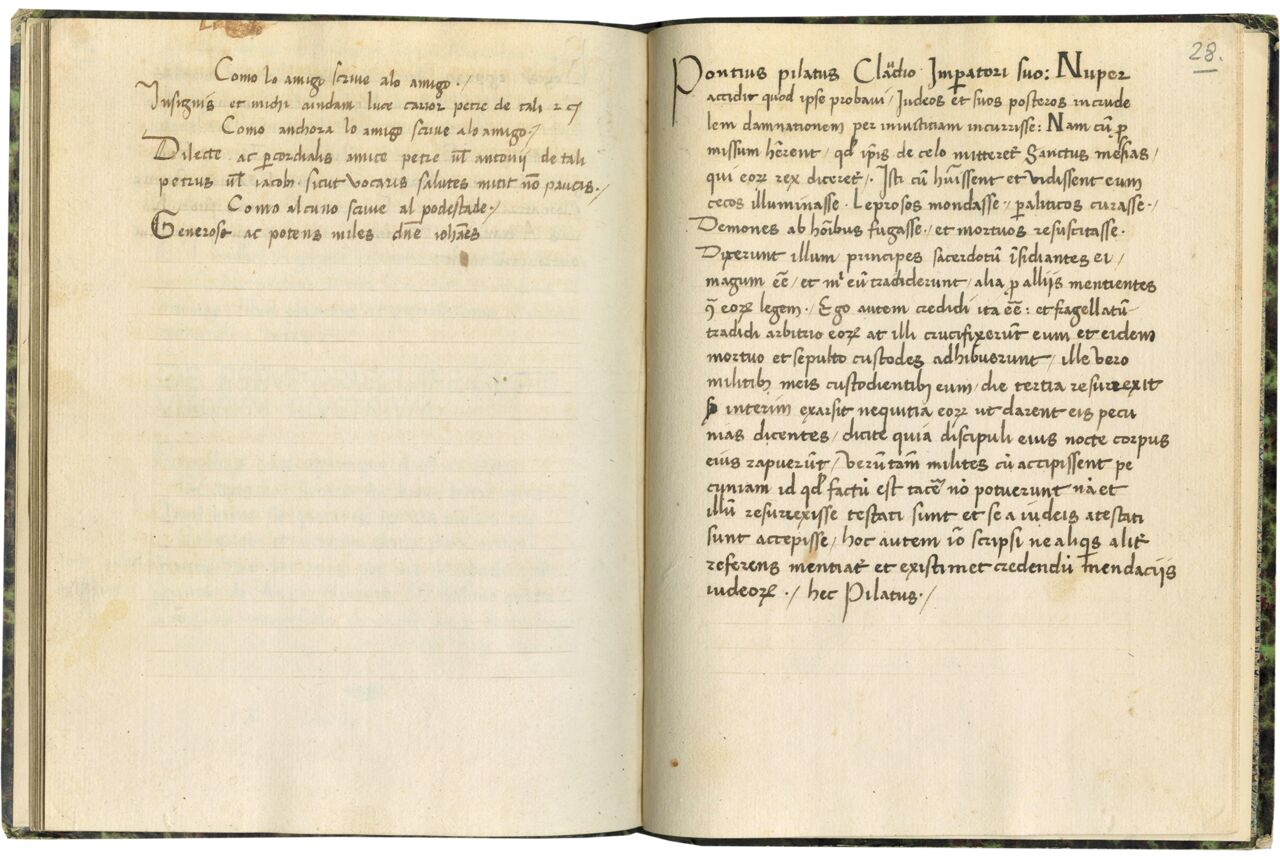 Como lo amigo scrive alo amigo·/
Insignis et michi quidam luce carior petre de tali
Como anchora lo amigo scrive alo amigo·/
Dilecte ac p̱cordialis amice petre ul̄ antonij de tali
petrus ul̄ iacobi sicut vocaris salutes mitit nō paucis·/
Como alcuno scrive al podestade·/
Generose ac potens miles dn̄e ioħaēs
28.
Pontius pilatus Claudio Imp̱atori suo: Nuper
accidit quod ipse probavi / Iudeos et suos posteros in crude
lem damnationem per iniustitiam incurrisse: Nam cū ꝓ
missum hēerent / qđ ip̄is de celo mitteret̄ Sanctus messias /
qui eoꝝ rex diceret̄·/ Isti cū hūissent et vidissent eum
cecos illuminasse· Leprosos mondasse·/ ꝑaliticos curasse·/
Demones ab hōibus fugasse·/ et mortuos resuscitasse·
Dixerunt illum principes sacerdotū īsidiantes ei /
magum eē / et mͥ eū tradiderunt / alia ꝓ allijs mentientes
ꝯ̄ eoꝝ legem·/ Ego autem credidi ita eē: et fragellatū
tradidi arbitrio eoꝝ at illi crucifixerūt eum et eidem
mortuo et sepulto custodes adhibuerunt / ille vero
militibꝫ meis custodientibꝫ eum / die tertia resurrexit
interim exarsit nequitia eoꝝ ut darent eis pecu
nias dicentes / dicite quia discipuli eius nocte corpus
eius rapuerūt / verūtam̄ milites cū accipissent pe
cuniam id qđ factū est tacē nō potuerunt nā et
illū resurrexisse testati sunt et se a iudeis atestati
sunt accepisse / hoc autem iō scripsi ne aliq̄s alit̄
referens mentiat̄ et existimet credendū mendacijs
iudeoꝝ·/ hec Pilatus·/